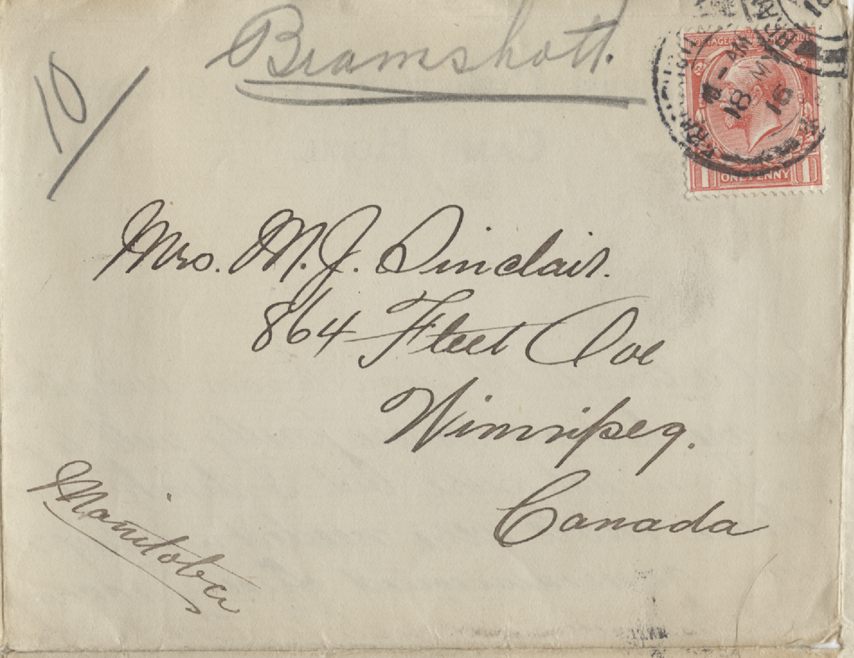 Bramshott.
10/
18 MY
16
ONE PENNY
Mrs. M. J. Sinclair.
864 Fleet Ave
Winnipeg.
Canada
Manitoba